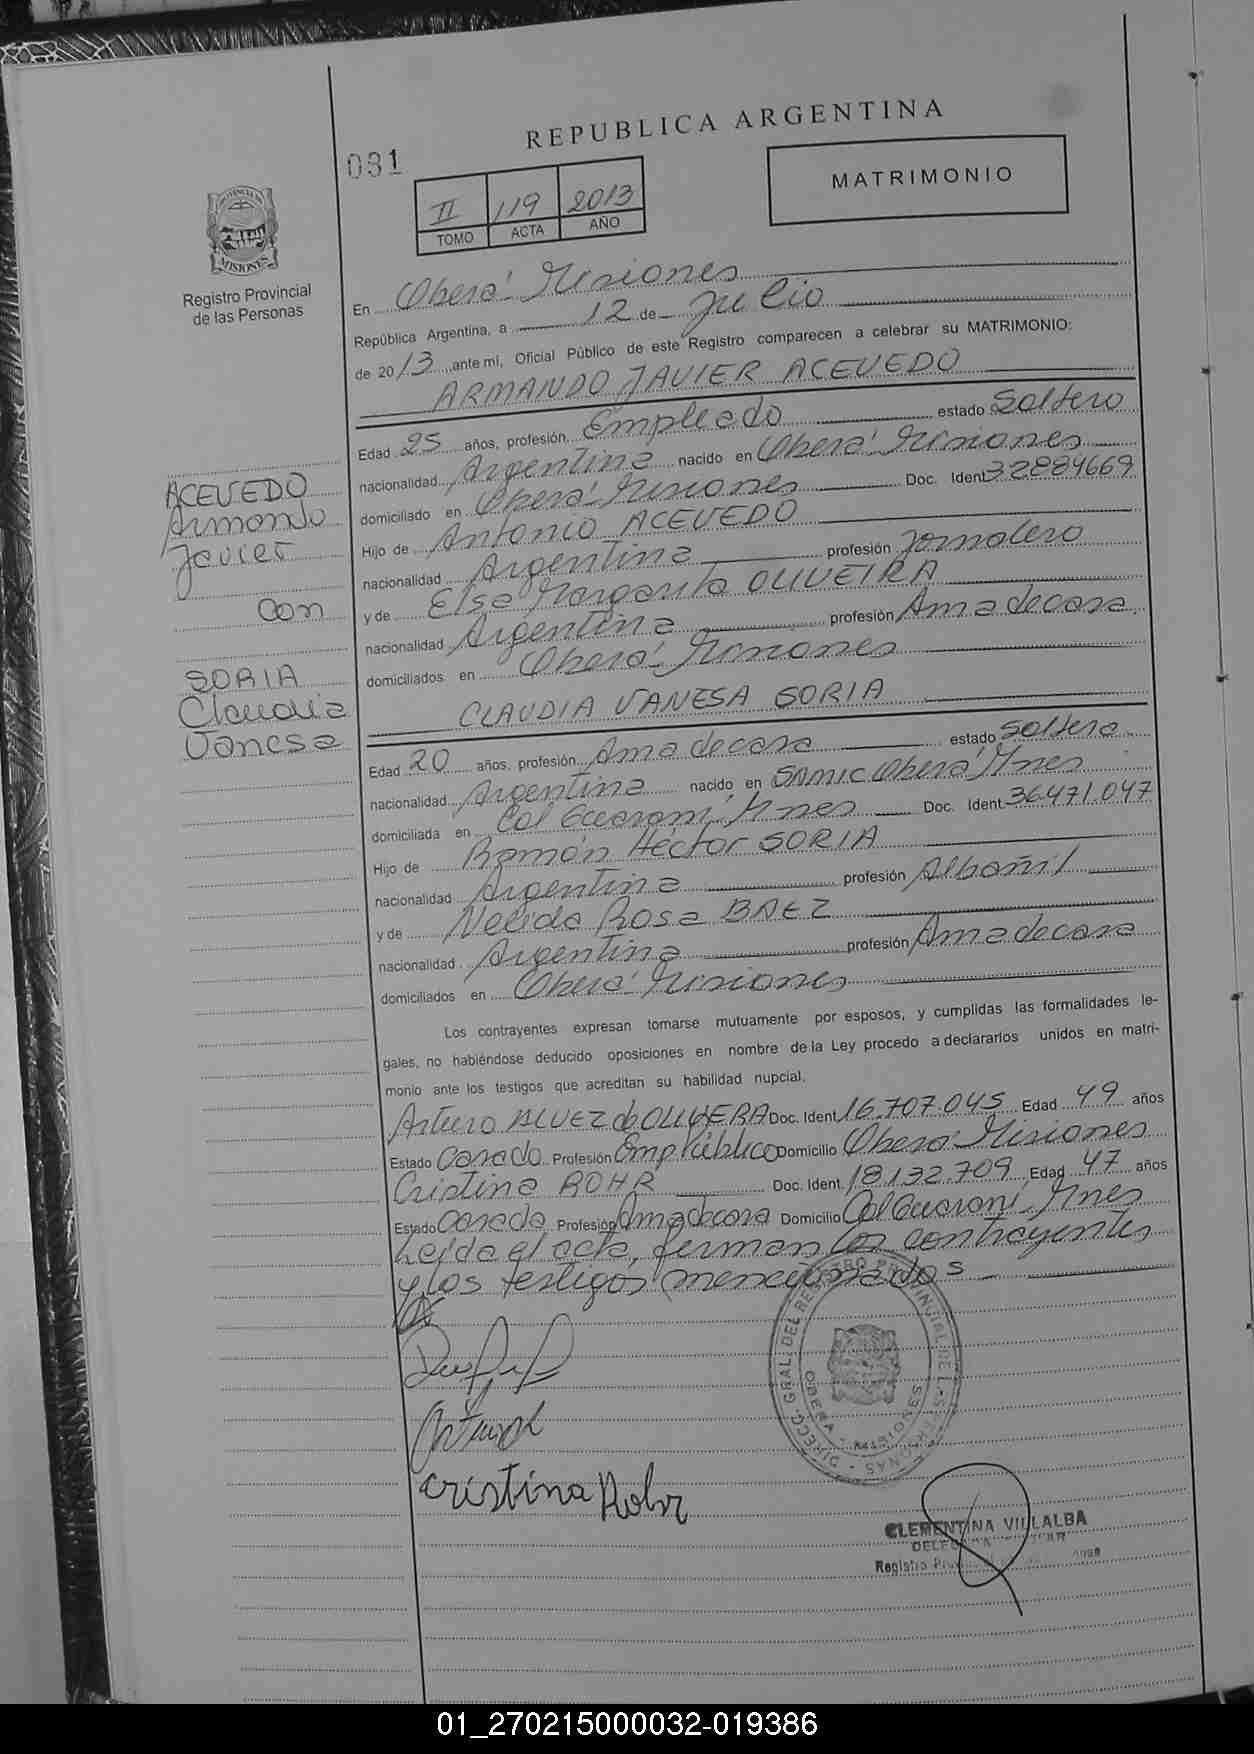 REPUBLICA ARGENTINA
081
MATRIMONIO
II 119 2013
TOMO ACTA AÑO
PROVINCIA DE
MISIONES
Registro Provincial
de las Personas
En Oberá Misiones
República Argentina, a 12 de Julio
de 2013 ante mí, Oficial Público de este Registro comparecen a celebrar su MATRIMONIO:
ARMANDO JAVIER ACEVEDO
Edad 25 años, profesión Empleado estado Soltero
nacionalidad Argentina nacido en Oberá Misiones
domiciliado en Oberá Misiones Doc. Ident 32884669
Hijo de Antonio ACEVEDO
nacionalidad Argentina profesión Jornalero
y de Elsa Margarita OLIVEIRA
nacionalidad Argentina profesión Ama de casa
domiciliados en Oberá Misiones
CLAUDIA VANESA SORIA
Edad 20 años, profesión Ama de casa estado soltera
nacionalidad Argentina nacido en SAMIC Oberá Mnes
domiciliada en Col Guaraní Mnes Doc. Ident. 36.471.047
Hijo de Ramón Héctor SORIA
nacionalidad Argentina profesión Albañil
y de Nelida Rosa BAEZ
nacionalidad Argentina profesión Ama de casa
domiciliados en Oberá Misiones
ACEVEDO
Armando
Javier
Con
SORIA
Claudia
Vanesa
Los contrayentes expresan tomarse mutuamente por esposos, y cumplidas las formalidades le-
gales, no habiéndose deducido oposiciones en nombre de la Ley procedo a declararlos unidos en matri-
monio ante los testigos que acreditan su habilidad nupcial.
Arturo ALVEZ de OLIVERA Doc. Ident. 16.707.045 Edad 49 años
Estado Casado Profesión Emp Público Domicilio Oberá Misiones
Cristina ROHR Doc. Ident. 18.132.709 Edad 47 años
Estado Casada Profesión Ama de casa Domicilio Col Guaraní Mnes
Leída el acta, firman los contrayentes
y los testigos mencionados
cristina Rohr
DIRECC. GRAL. DEL REGISTRO PROVINCIAL DE LAS PERSONAS
OBERA - MISIONES
CLEMENTINA VILLALBA
Registro
01_270215000032-019386